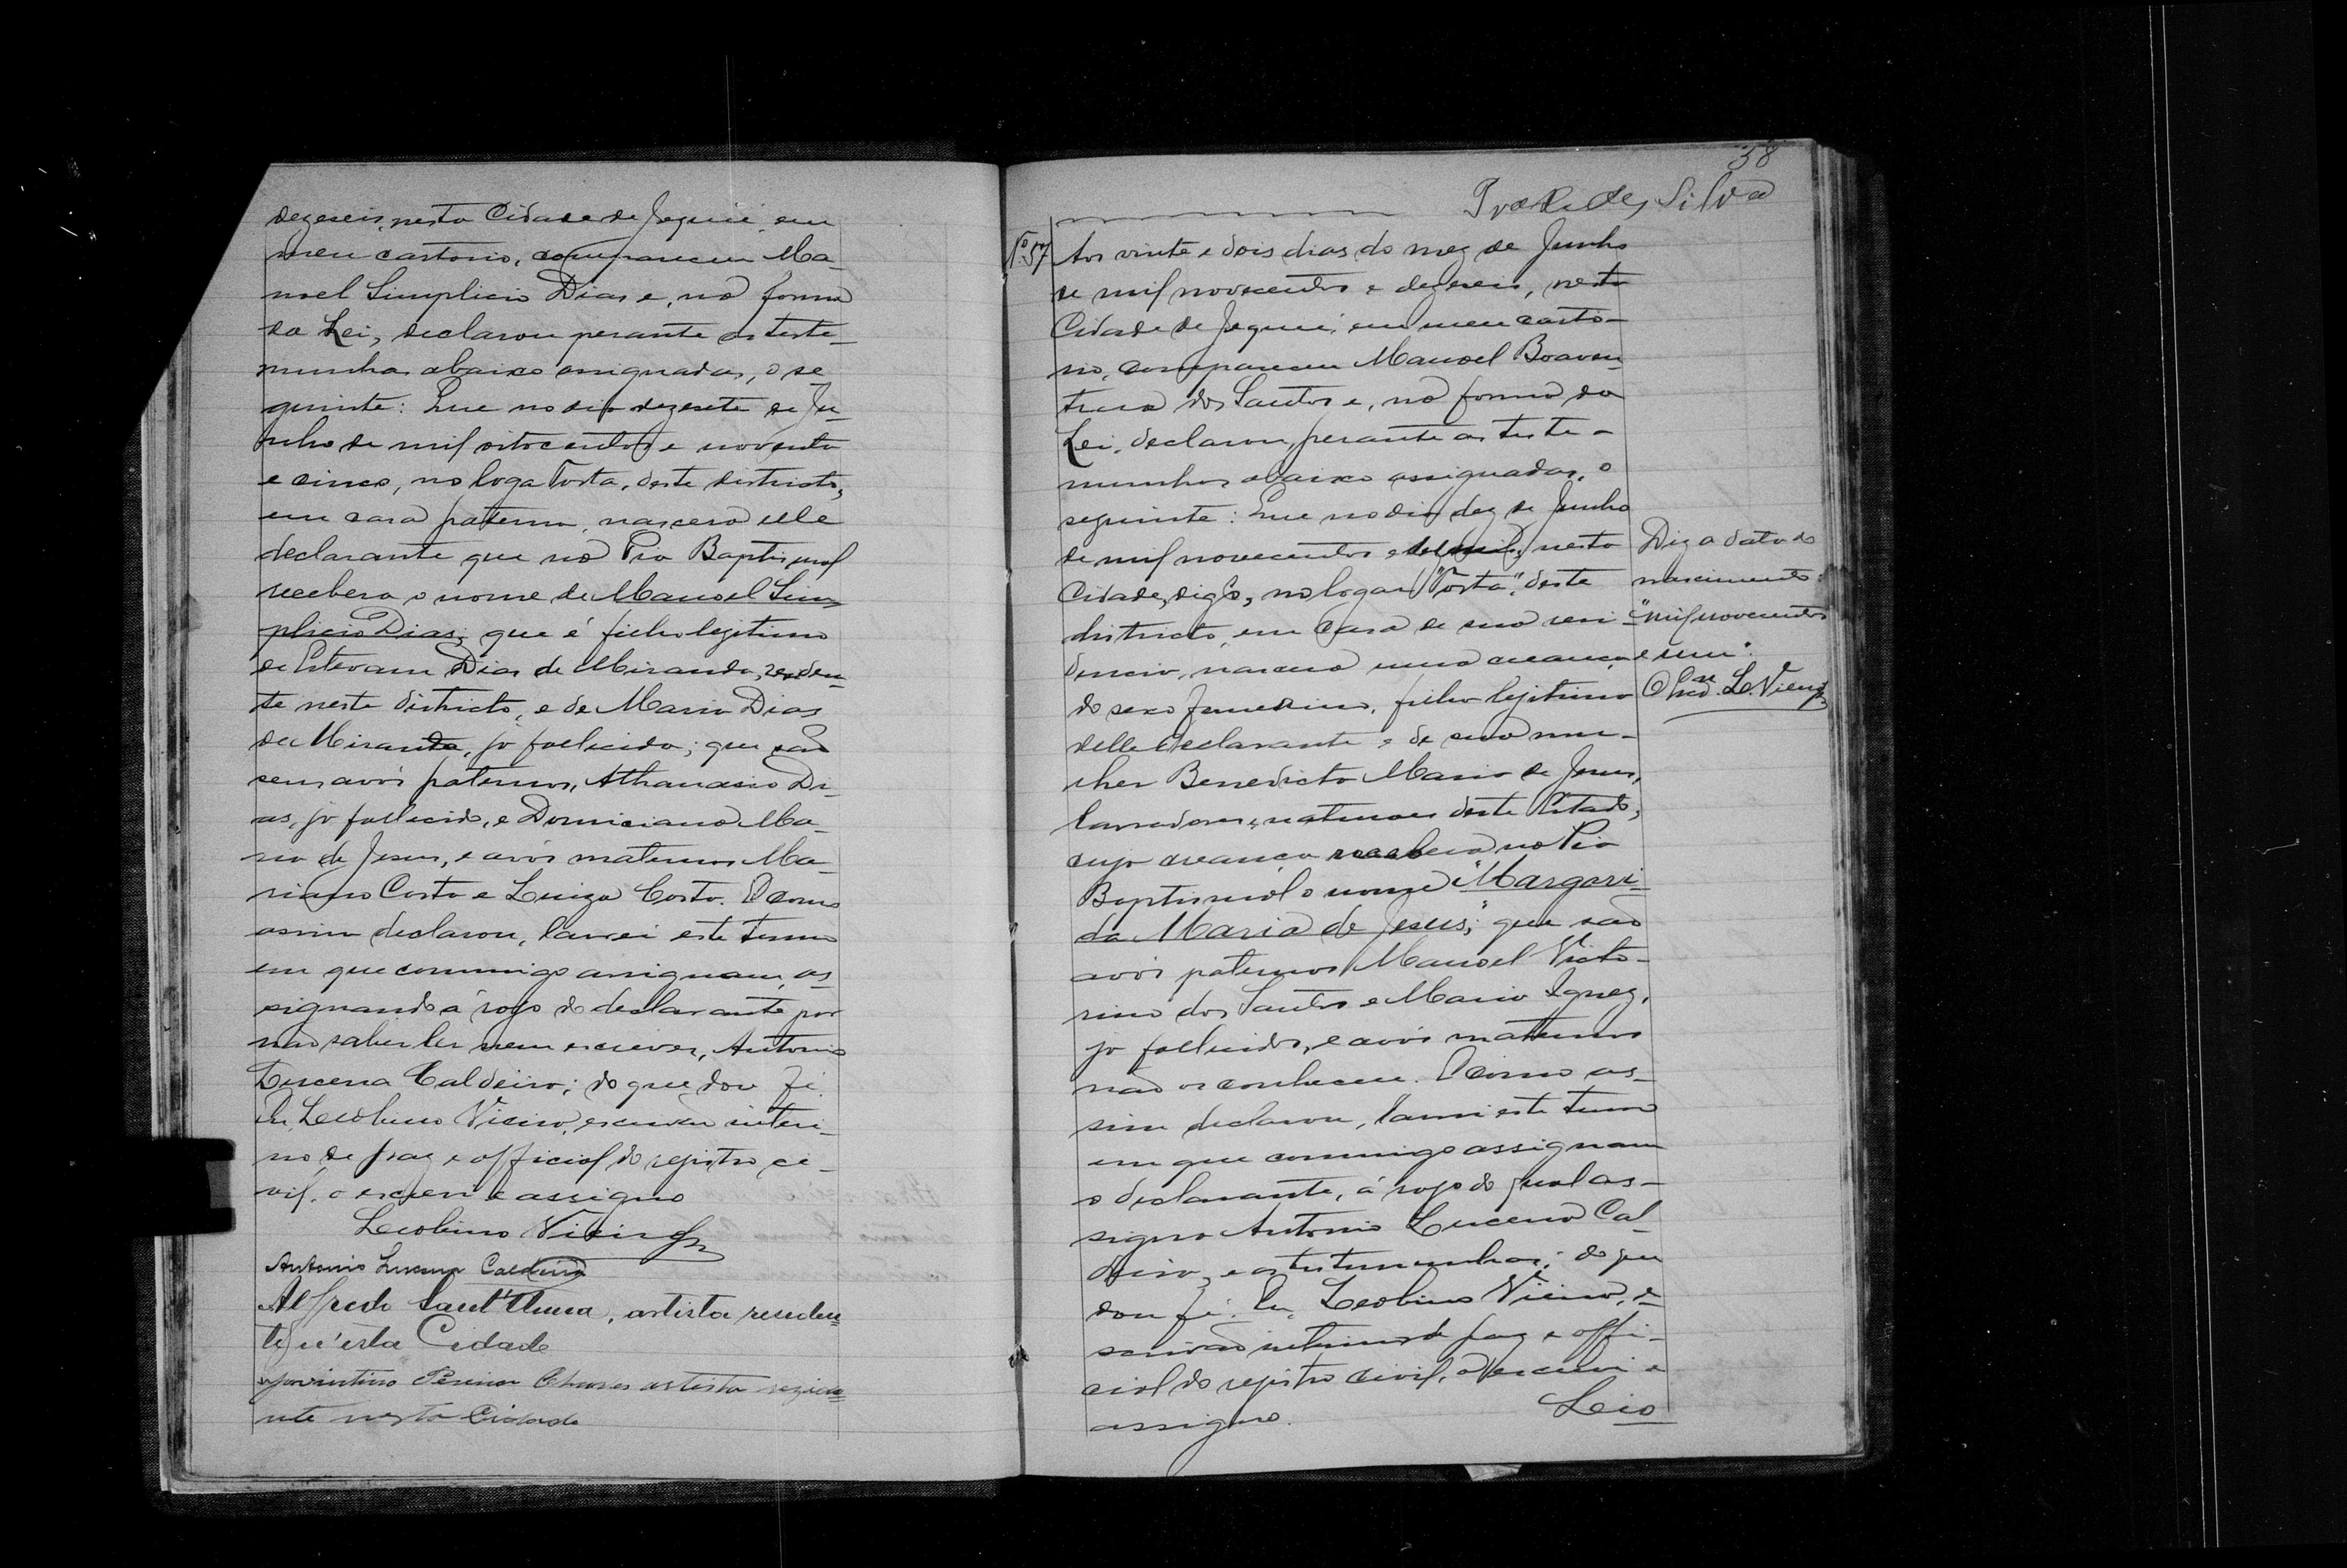 dezeseis, nesta Cidade de Jequié, em
meu cartorio, compareceu Ma-
noel Simplicio Dias e, na forma
da Lei, declarou perante as teste-
munhas abaixo assignadas, o se-
guinte: Que no dia dezesete de Ju-
nho de mil oitocentos e noventa
e cinco, no loga Tosta, deste districto,
em casa paterna, nascera elle
declarante que na Pia Baptismal
recebera o nome de Manoel Sim-
plicio Dias; que é filho legitimo
de Estevam Dias de Miranda, residen-
te neste districto, e de Maria Dias
de Miranda, já fallecida; que são
seus avós paternos, Athanasio Di-
as, já fallecido, e Domiciana Ma-
ria de Jesus, e avós maternos Ma-
riano Costa e Luiza Costa. E como
assim declarou, lavrei este termo
em que commigo assignam, as-
signando á rogo do declarante por
não saber ler nem escrever, Antonio
Lucena Caldeira; do que dou fé.
Eu, Leolino Vieira, escrivão interi-
no de paz e official do registro ci-
vil, o escrevi e assigno
Leolino Vieira
Antonio Lucena Caldeira
Alfredo Sant'Anna, artista residen-
te n'esta Cidade
Jovintino Pereira Chaves artista rezide-
nte nesta Cidade
38
Silva
Nº 57
Aos vinte e dois dias do mez de Junho
de mil novecentos e dezeseis, nesta
Cidade de Jequié, em meu carto-
rio, compareceu Manoel Boaven-
tura dos Santos e, na forma da
Lei, declarou, perante as teste-
munhas abaixo assignadas, o
seguinte: Que no dia dez de Junho
de mil novecentos e nesta
Cidade, digo, no logar "Tosta", deste
districto, em casa de sua resi-
dencia, nascera uma creança
do sexo femenino, filha legitima
delle declarante e de sua mu-
lher Benedicta Maria de Jesus,
lavradores, naturaes deste Estado,
cuja creança recebera na Pia
Baptismal o nome "Margari-
da Maria de Jesus;" que são
avós paternos Manoel Victo-
rino dos Santos e Maria Ignez,
já fallecidos, e avós maternos
não os conheceu. E como as-
sim declarou, lavrei este termo
em que commigo assignam
o declarante, á rogo do qual as-
signa Antonio Lucena Cal-
deira, e as testemunhas; do que
dou fé. Eu, Leolino Vieira, es-
crivão interino de paz e offi-
cial do registro civil, o escrevi e
assigno.
Leo
Digo data do
nascimento:
"mil novecentos
e um".
L. Vieira